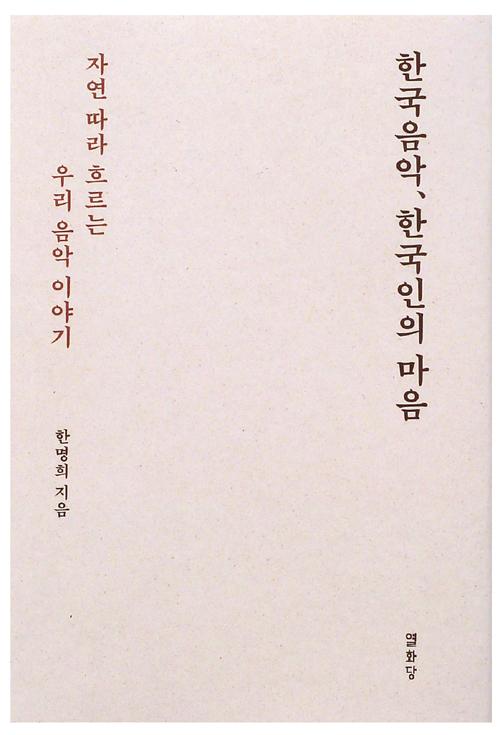 한국음악、한국인의 마음
자연 따라 흐르는
우리 음악 이야기
한명희 지음
열화당